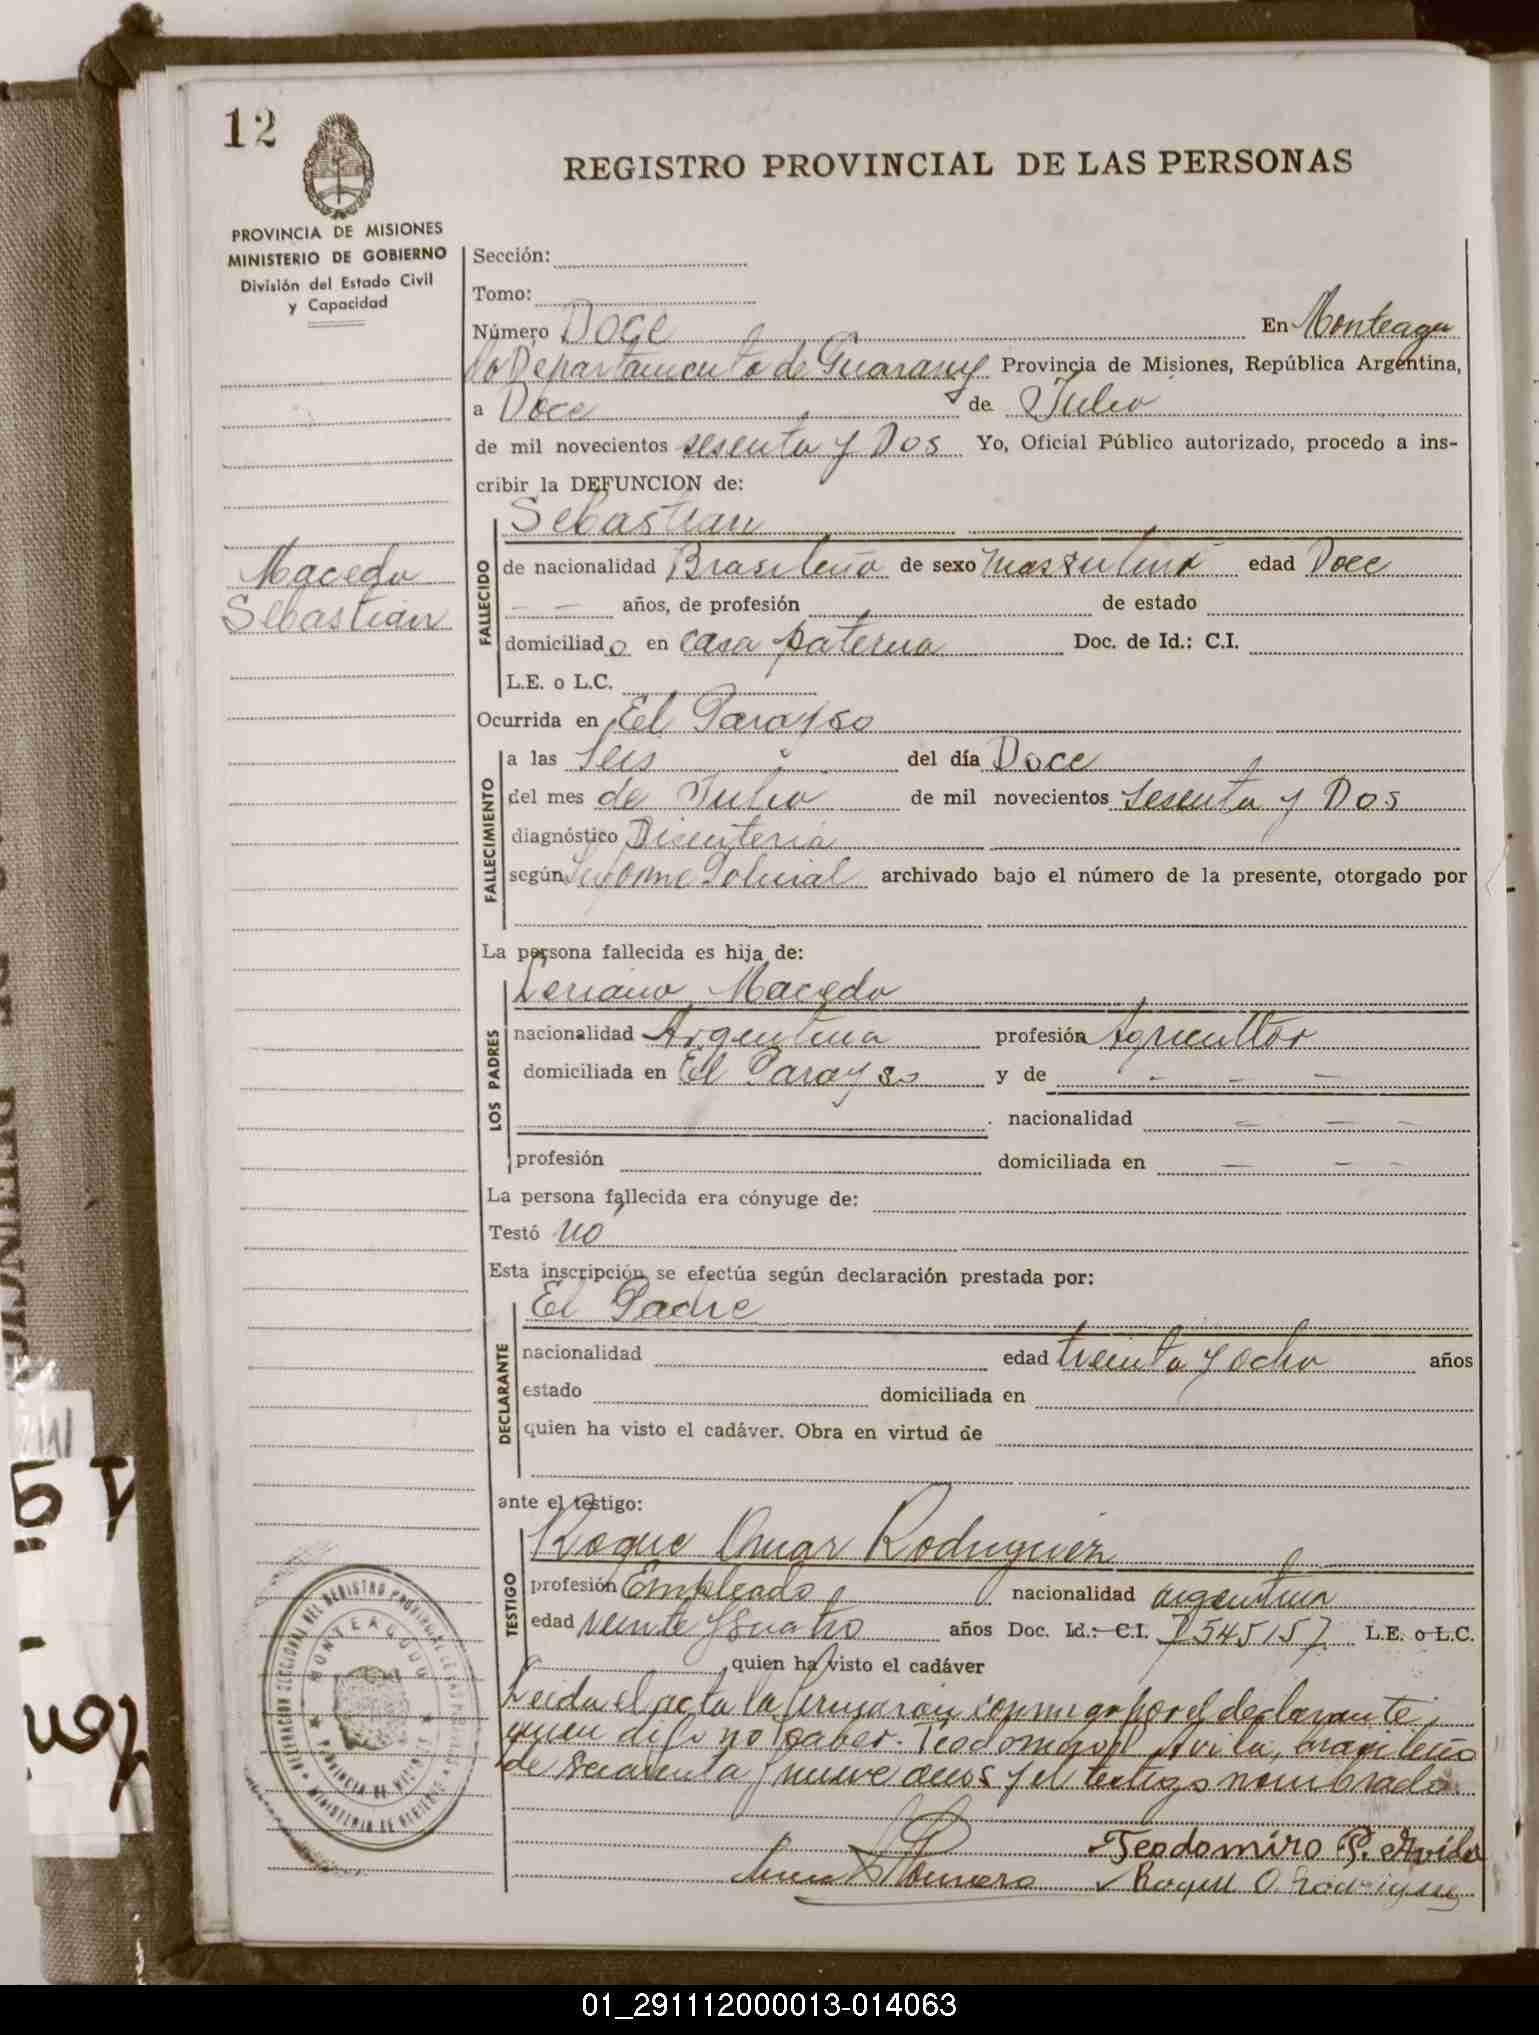 12
REGISTRO PROVINCIAL DE LAS PERSONAS
PROVINCIA DE MISIONES
MINISTERIO DE GOBIERNO
División del Estado Civil
y Capacidad
Sección:
Tomo:
Número Doce En Monteagu
do Departamento de Guarany Provincia de Misiones, República Argentina,
a Doce de Julio
de mil novecientos sesenta y Dos Yo, Oficial Público autorizado, procedo a ins-
cribir la DEFUNCION de:
Macedo
Sebastian
FALLECIDO
Sebastian
de nacionalidad Brasileña de sexo masculino edad Doce
— — años, de profesión de estado
domiciliado en casa paterna Doc. de Id.: C.I.
L.E. o L.C.
Ocurrida en El Parayso
FALLECIMIENTO
a las Seis del día Doce
del mes de Julio de mil novecientos sesenta y Dos
diagnóstico Disenteria
según Informe Policial archivado bajo el número de la presente, otorgado por
La persona fallecida es hija de:
LOS PADRES
Macedo
nacionalidad Argentina profesión Agricultor
domiciliada en El Parayso y de - - -
nacionalidad - - -
profesión domiciliada en — - -
La persona fallecida era cónyuge de:
Testó no
Esta inscripción se efectúa según declaración prestada por:
DECLARANTE
El Padre
nacionalidad edad treinta y ocho años
estado domiciliada en
quien ha visto el cadáver. Obra en virtud de
ante el testigo:
TESTIGO
Roque Omar Rodriguez
profesión Empleado nacionalidad argentina
edad veinte y cuatro años Doc. Id.: C.I. 7545157 L.E. o L.C.
quien ha visto el cadáver
Leida el acta la firmaron conmigo por el declarante
quien dijo no saber. Teodomiro P. Avila, brasileño
de y nueve años y el testigo nombrado.
Teodomiro P. Avila
Romero Roque O Rodriguez
MONTEAGUDO
PROVINCIA DE MISIONES
01_291112000013-014063